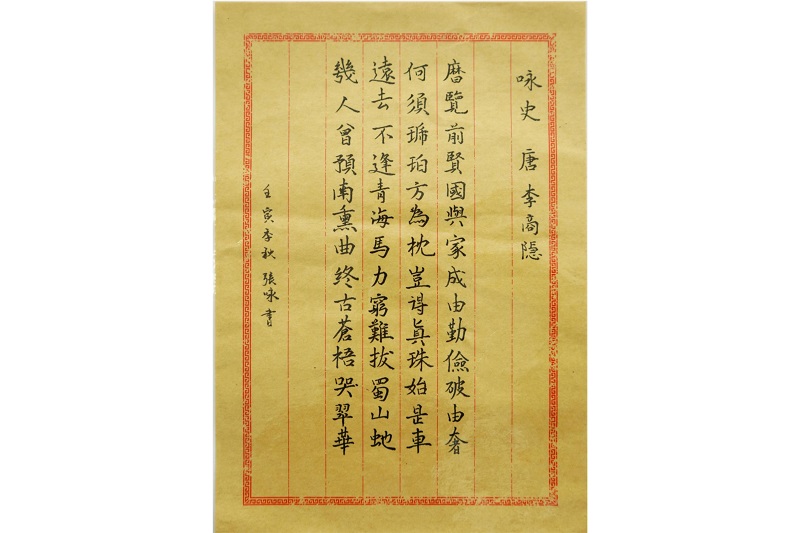 咏史 唐 李商隐
曆覽前賢國與家成由勤儉破由奢
何須琥珀方為枕豈得眞珠始是車
遠去不逢青海馬力窮難拔蜀山虵
幾人曾預南熏曲終古蒼梧哭翠華
壬寅季秋 張咏書